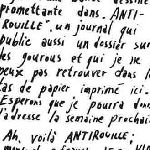 promettante dans "ANTI-
ROUILLE", un journal qui
public aussi un dossier sur
des gourous et qui je ne
peux pas retrouver dans l
tas de papier imprimé ici-
Esperons que je pourra donn
l'adresse la semaine prochain
Ah, voilà ANTIROUILLE;